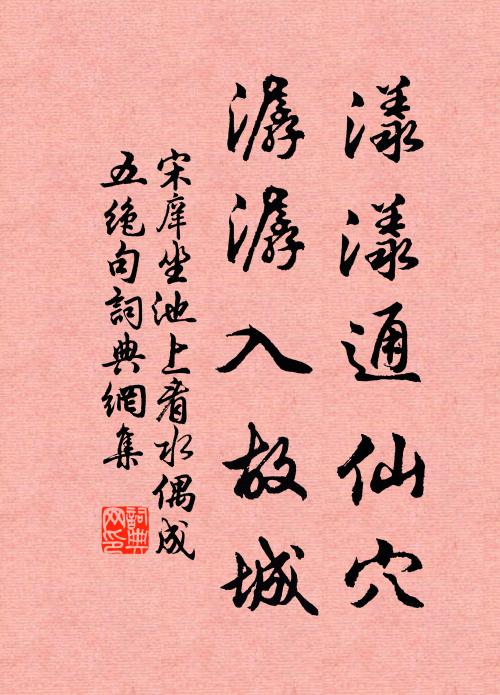 漾漾通仙穴
潺潺入故城
宋庠坐池上看水偶成
五絶句詞典網集
詞典
网印